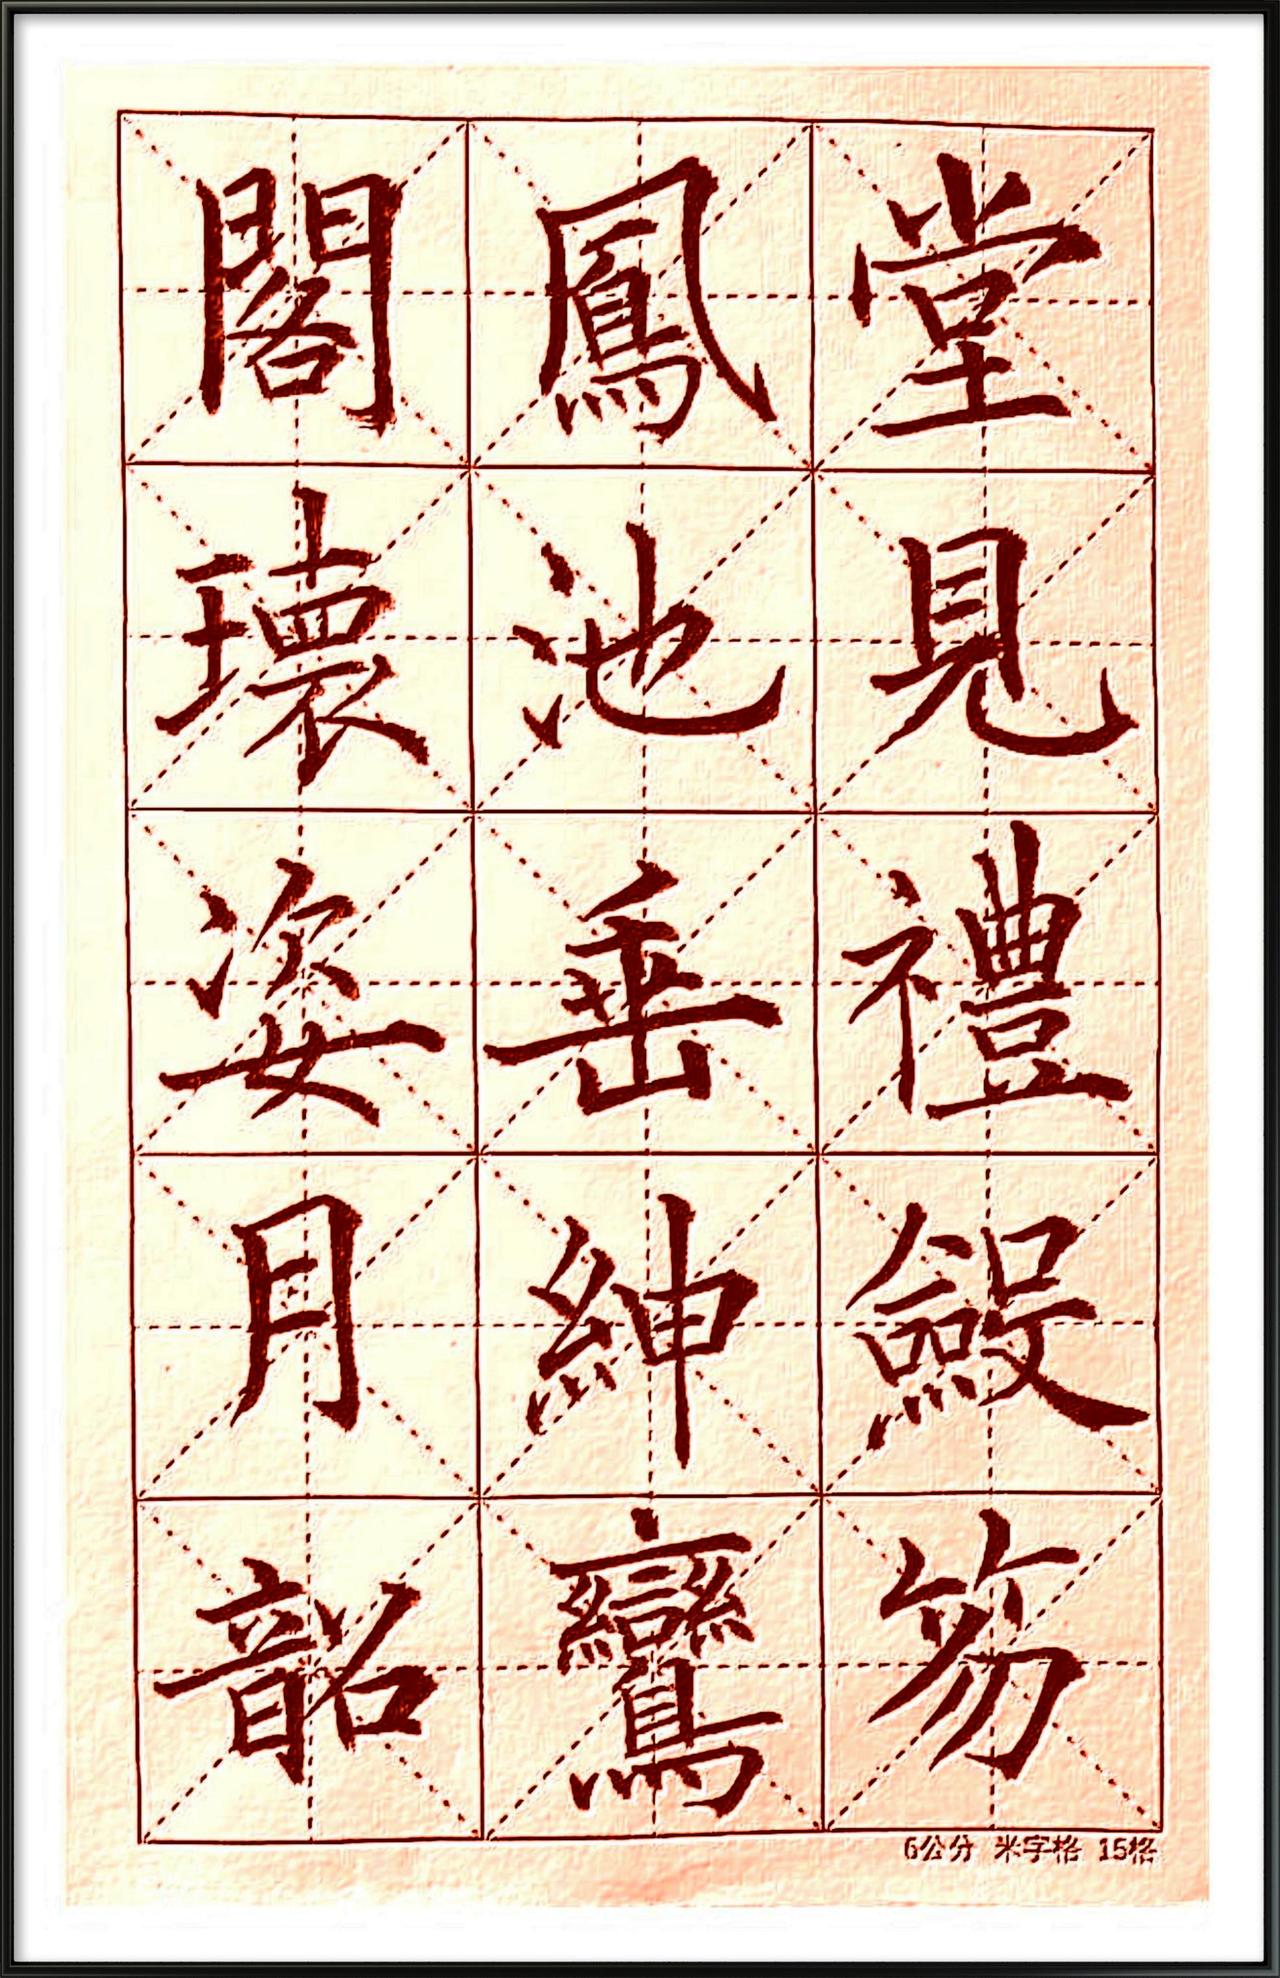 堂見禮斂笏
鳳池垂紳鸞
閣瓌姿月韶
6公分 米字格 15格